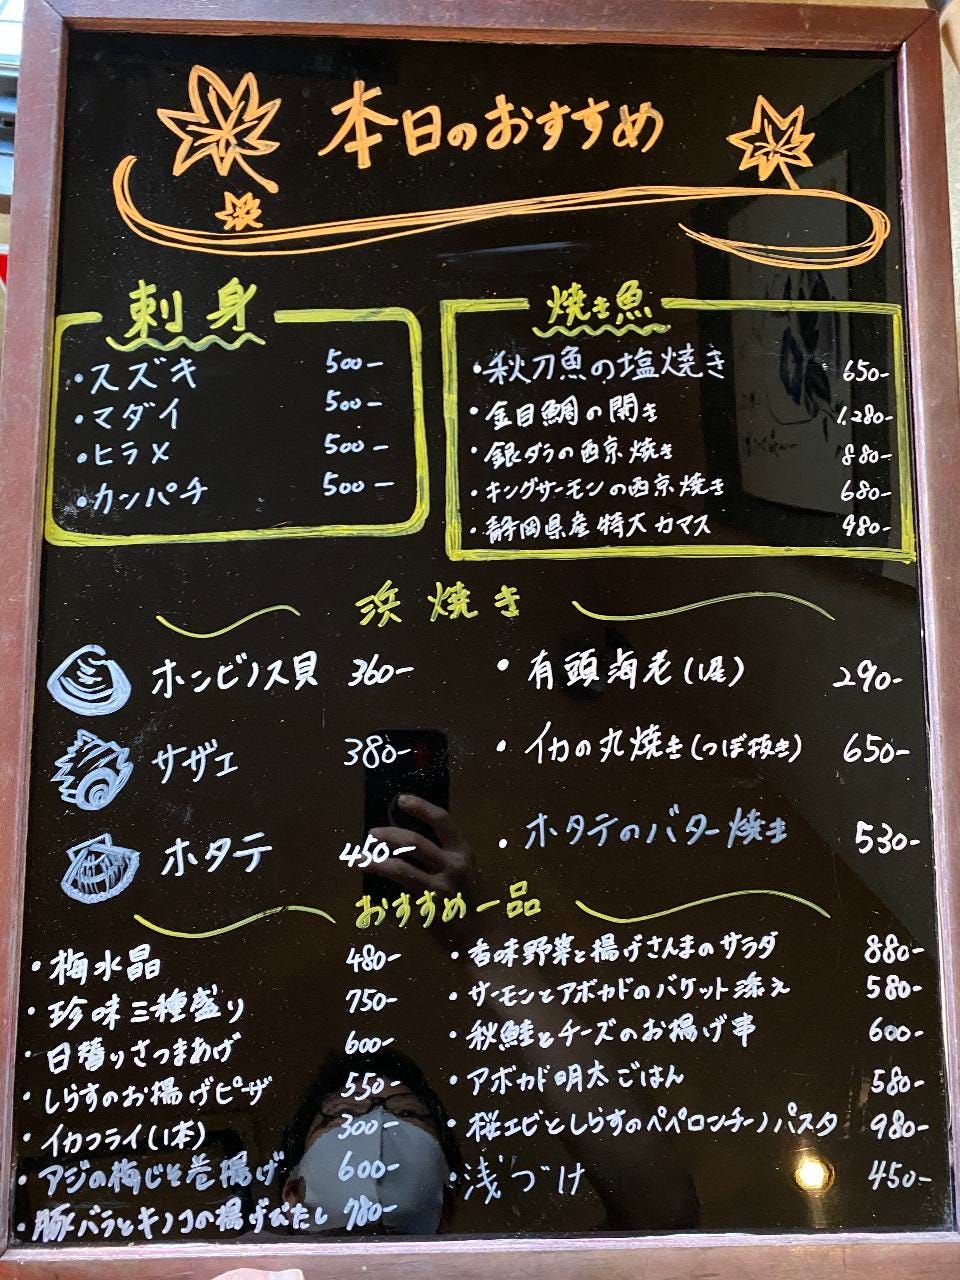 本日のおすすめ
刺身
・スズキ 500-
・マダイ 500-
・ヒラメ 500-
・カンパチ 500-
焼き魚
・秋刀魚の塩焼き 650-
・金目鯛の開き 1,280-
・銀ダラの西京焼き 880-
・キングサーモンの西京焼き 680-
・静岡県産特大カマス 980-
浜焼き
ホンビノス貝 360-
サザエ 380-
ホタテ 450-
・有頭海老(1尾) 290-
・イカの丸焼き(つぼ抜き) 650-
・ホタテのバター焼き 530-
おすすめ一品
・梅水晶 480-
・珍味三種盛り 750-
・日替りさつまあげ 600-
・しらすのお揚げピザ 550-
・イカフライ(1本) 300-
・アジの梅じそ巻揚げ 600-
・豚バラとキノコの揚げびたし 780-
・香味野菜と揚げさんまのサラダ 880-
・サーモンとアボカドのバケット添え 580-
・秋鮭とチーズのお揚げ串 600-
・アボカド明太ごはん 580-
・桜エビとしらすのペペロンチーノパスタ 980-
・浅づけ 450-